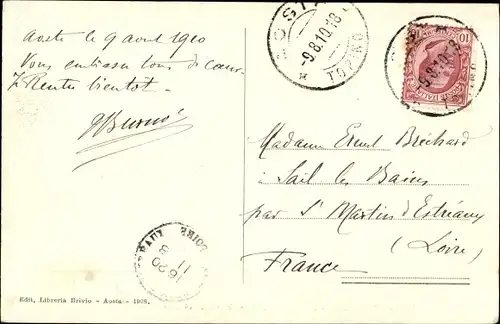 Aoste le 9 août 1910
Vous embrasse tous de cœur
Rentre bientôt.
AOSTA
-9.8.10.-18
* TORINO
10
-9.8.10-18
Madame Ernest Bréchard
à Sail les Bains
par St Martin d'Estréaux
(Loire)
France
LOIRE
11
8
16 20
Edit. Libreria Brivio - Aosta - 1908.